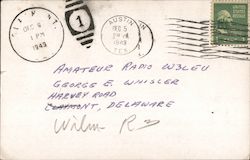 DEC 6
1 PM
1949
1
AUSTIN
DEC 5
1949
TEX.
AMATEUR RADIO W3LEU
GEORGE E. WHISLER
HARVEY ROAD
CLAYMONT, DELAWARE
Wilm